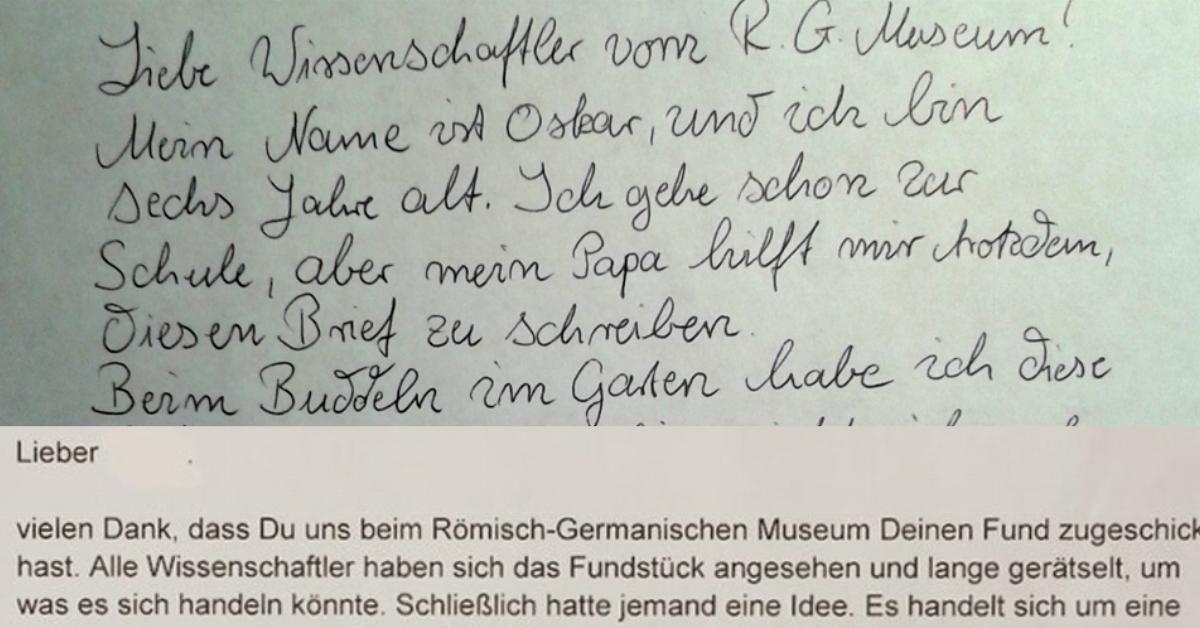 Liebe Wissenschaftler vom R. G. Museum!
Mein Name ist Oskar, und ich bin
sechs Jahre alt. Ich gehe schon zur
Schule, aber mein Papa hilft mir trotzdem,
diesen Brief zu schreiben.
Beim Buddeln im Garten habe ich diese
Lieber
vielen Dank, dass Du uns beim Römisch-Germanischen Museum Deinen Fund zugeschick
hast. Alle Wissenschaftler haben sich das Fundstück angesehen und lange gerätselt, um
was es sich handeln könnte. Schließlich hatte jemand eine Idee. Es handelt sich um eine